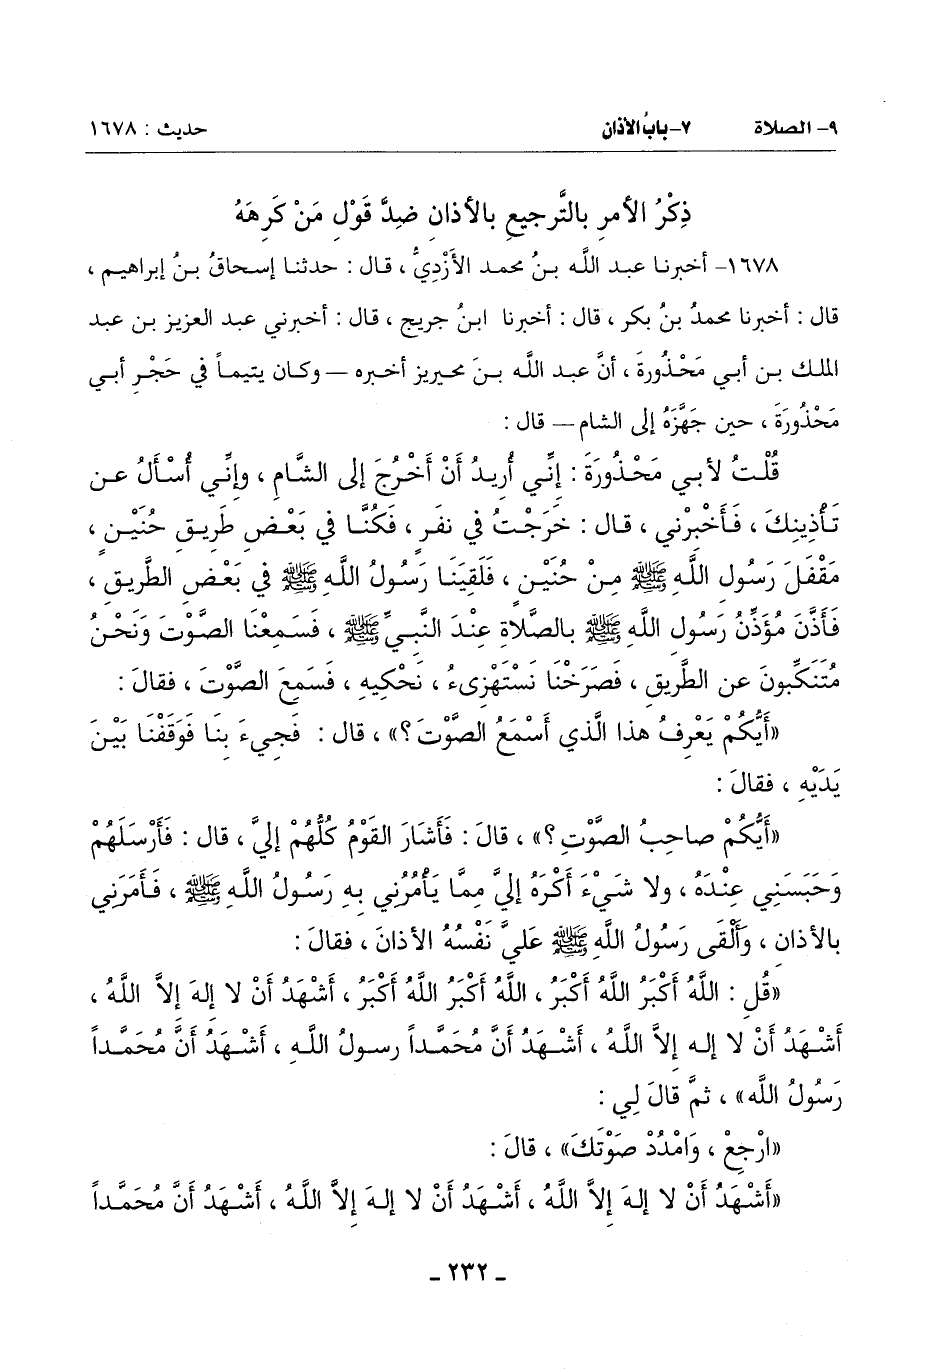 ٩- الصلاة ٧-بابُ الأذان حديث : ١٦٧٨
ذِكْرُ الأمرِ بالتَّرجيعِ بالأذانِ ضِدَّ قَوْلِ مَنْ كَرِهَهُ
١٦٧٨- أخبرنا عبد اللَّه بنُ محمد الأَزْدِيُّ ، قال : حدثنا إسحاقُ بنُ إبراهيم ،
قال : أخبرنا محمدُ بنُ بكر ، قال : أخبرنا ابنُ جريج ، قال : أخبرني عبد العزيز بن عبد
الملك بن أبي مَحْذُورةَ ، أنَّ عبد اللَّه بنَ محيريز أخبره – وكان يتيماً في حَجْرِ أبي
مَحْذُورَةَ ، حين جَهَّزَهُ إلى الشام – قال :
قُلْتُ لأبي مَحْذُورَةَ : إنِّي أُريدُ أنْ أَخْرُجَ إلى الشَّامِ ، وإنِّي أُسْأَلُ عن
تَأْذِينِكَ ، فَأَخْبِرْني ، قال : خَرَجْتُ في نفَرٍ ، فَكُنَّا في بَعْضِ طَريقِ حُنَيْنٍ ،
مَقْفَلَ رَسُولِ اللَّهِ ﷺ مِنْ حُنَيْنٍ ، فَلَقِيَنَا رَسُولُ اللَّهِ ﷺ في بَعْضِ الطَّريقِ ،
فَأَذَّنَ مُؤَذِّنُ رَسُولِ اللَّهِ ﷺ بالصَّلاةِ عِنْدَ النَّبيِّ ﷺ ، فَسَمِعْنَا الصَّوْتَ وَنَحْنُ
مُتَنَكِّبونَ عن الطَّريقِ ، فَصَرَخْنَا نَسْتَهْزِىءُ ، نَحْكِيهِ ، فَسَمِعَ الصَّوْتَ ، فقالَ :
«أَيُّكُمْ يَعْرِفُ هذا الَّذي أَسْمَعُ الصَّوْتَ ؟» ، قال : فَجِيءَ بِنَا فَوَقَفْنَا بَيْنَ
يَدَيْهِ ، فقالَ :
«أَيُّكُمْ صاحِبُ الصَّوْتِ ؟» ، قالَ : فَأَشَارَ القَوْمُ كُلُّهُمْ إليَّ ، قال : فَأَرْسَلَهُمْ
وَحَبَسَنِي عِنْدَهُ ، ولا شَيْءَ أَكْرَهُ إليَّ مِمَّا يَأْمُرُنِي بِهِ رَسُولُ اللَّهِ ﷺ ، فَأَمَرَنِي
بالأذانِ ، وأَلْقَى رَسُولُ اللَّهِ ﷺ عَلَيَّ نَفْسُهُ الأذانَ ، فقالَ :
«قُلِ : اللَّهُ أكْبَرُ اللَّهُ أكْبَرُ ، اللَّهُ أكْبَرُ اللَّهُ أكْبَرُ ، أشْهَدُ أنْ لا إلهَ إلاَّ اللَّهُ ،
أشْهَدُ أنْ لا إله إلاَّ اللَّهُ ، أشْهَدُ أنَّ مُحَمَّداً رسولُ اللَّهِ ، أشْهَدُ أنَّ مُحَمَّداً
رَسُولُ اللَّه» ، ثمَّ قالَ لِي :
«ارْجِعْ ، وَامْدُدْ صَوْتَكَ» ، قالَ :
«أشْهَدُ أنْ لا إلهَ إلاَّ اللَّهُ ، أشْهَدُ أنْ لا إلهَ إلاَّ اللَّهُ ، أشْهَدُ أنَّ مُحَمَّداً
- ٢٣٢ -